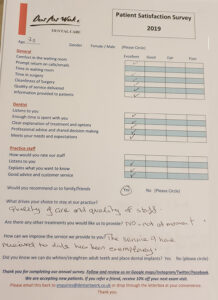 DENTAL CARE
Patient Satisfaction Survey
2019
Age 70 Gender Female / Male (Please Circle)
Excellent Good Fair Poor
General
Comfort in the waiting room
Prompt return on calls/emails
Time in waiting room
Time in surgery
Cleanliness of Surgery
Quality of service delivered
Information provided to patients
Dentist
Listens to you
Enough time is spent with you
Clear explanation of treatment and options
Professional advice and shared decision making
Meets your needs and expectations
Practice staff
How would you rate our staff
Listens to you
Explains what you want to know
Good advice and customer service
Would you recommend us to family/friends Yes No (Please Circle)
What drives your choice of dental practice?
Quality of care and quality of staff.
Are there any other treatments you would like us to provide? No - not at moment.
How can we improve the service we provide to you? The service I have
received to date has been exemplary.
Did you know we can do whiten/straighten adult teeth and place dental implants? Yes No (please circle)
Thank you for completing our annual survey. Follow and review us on Google maps/Instagram/Twitter/Facebook.
We are accepting new patients. If you refer a friend, receive 10% off your next exam visit.
Please email this back to or drop through the letterbox at your convenience
Thank you.